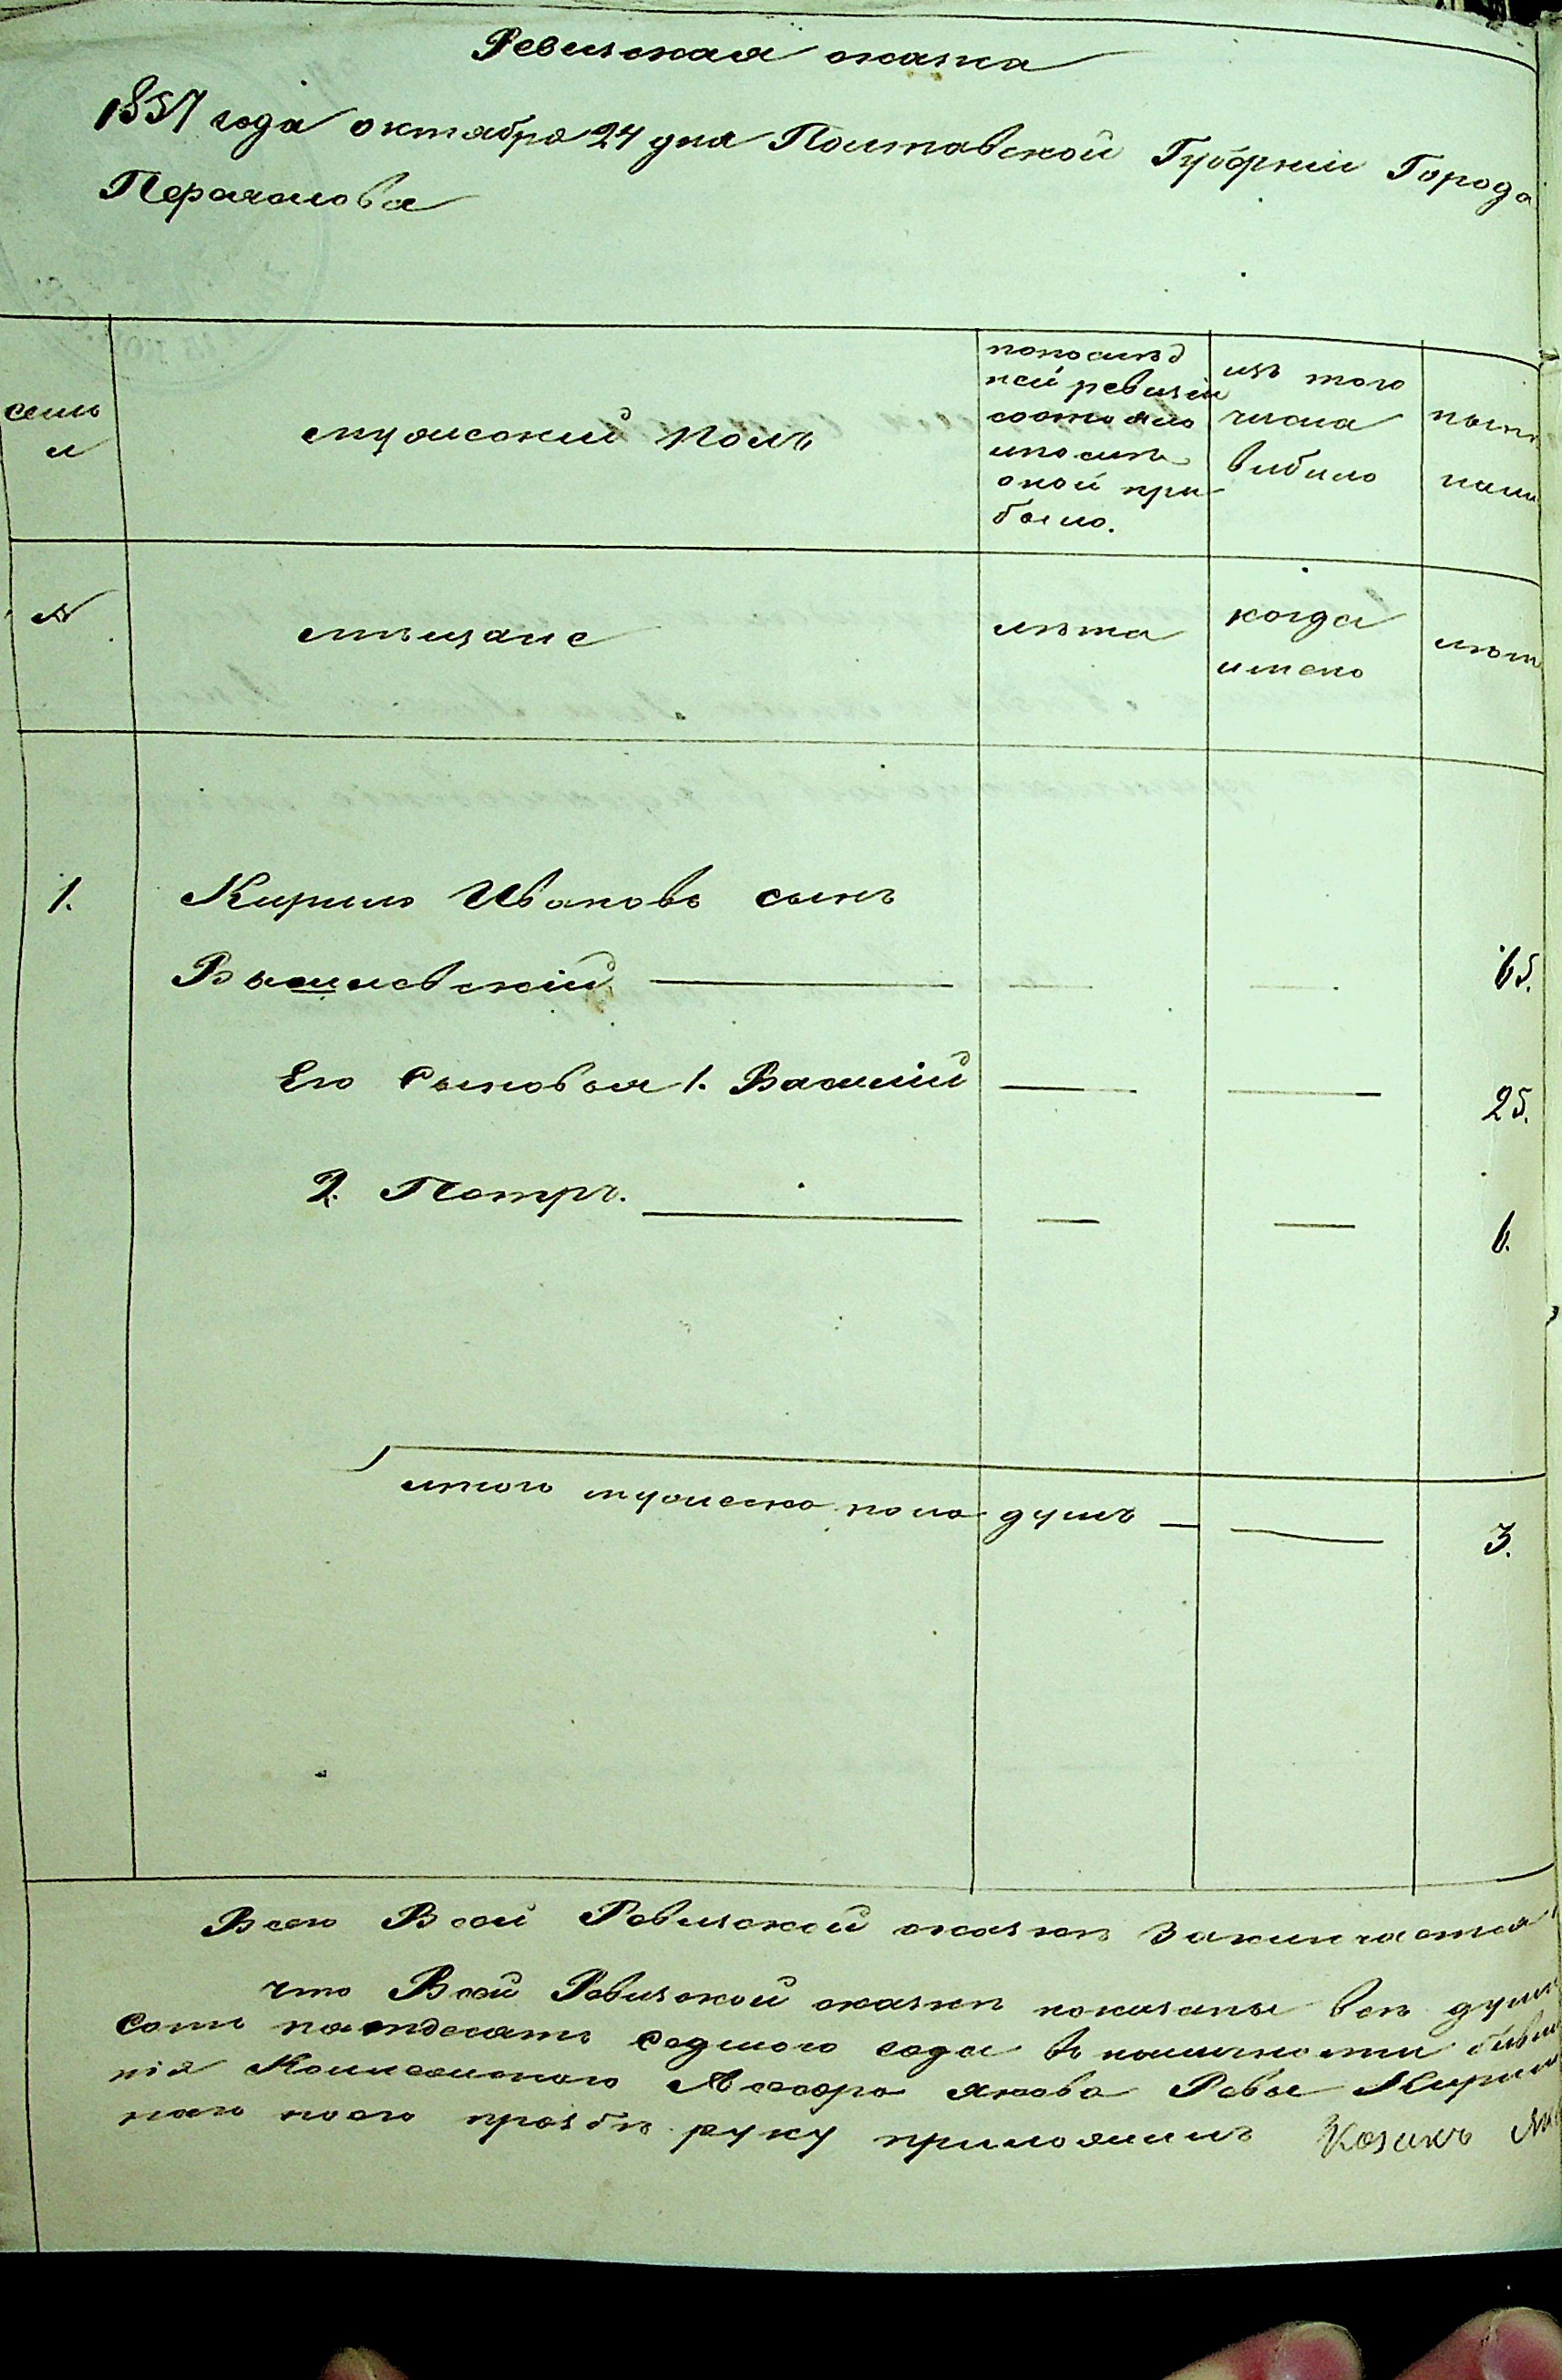 Ревизская сказка
1857 года октября 24 дня Полтавской Губернии Города
Переяслова
семьи
мужеский полъ
попослед
ней ревизіи
состояло
и после
оной при
было.
изъ того
числа
выбило
ныне
нали
№
мѣщане
лѣта
когда
имено
лѣт
1.
Кирило Ивановъ сынъ
Вышневский 65.
Его Сыновья 1. Василий 25.
2. Петръ. 6.
итого мужеска пола душъ 3.
Всего Всей Ревизской сказки Заключается
что Всей Ревизской сказки показаны все душ
сотъ пятдесятъ седмого года в наличности бывш
нія Колежского Асесора Якова Ревы Кирил
наго поего прозбѣ руку приложилъ Козакъ